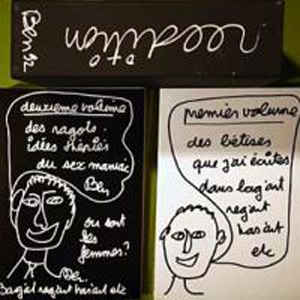 reedition
Ben 92
deuxieme volume
des ragots.
idées theories
du sex maniac
Ben
ou sont
les
femmes?
Ben.
Bag'art reg'art has'art etc
premier volume
des bêtises
que j'ai écrites
dans bag'art
reg'art
has'art
etc